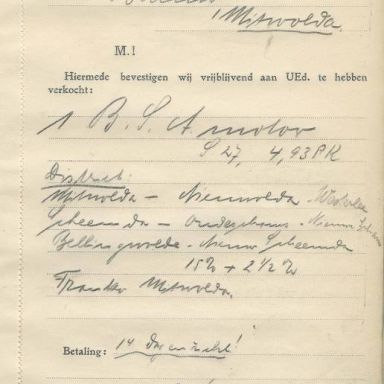 Midwolda.
M.!
Hiermede bevestigen wij vrijblijvend aan UEd. te hebben
verkocht:
1 B.S.A motor
S 27, 4,93 PK
District:
Midwolda – Nieuwolda
Scheemda – – Nieuw
Bellingwolde – Nieuw Scheemda
15% + 2½%
Franko Midwolda.
Betaling: 14 dagen zicht!